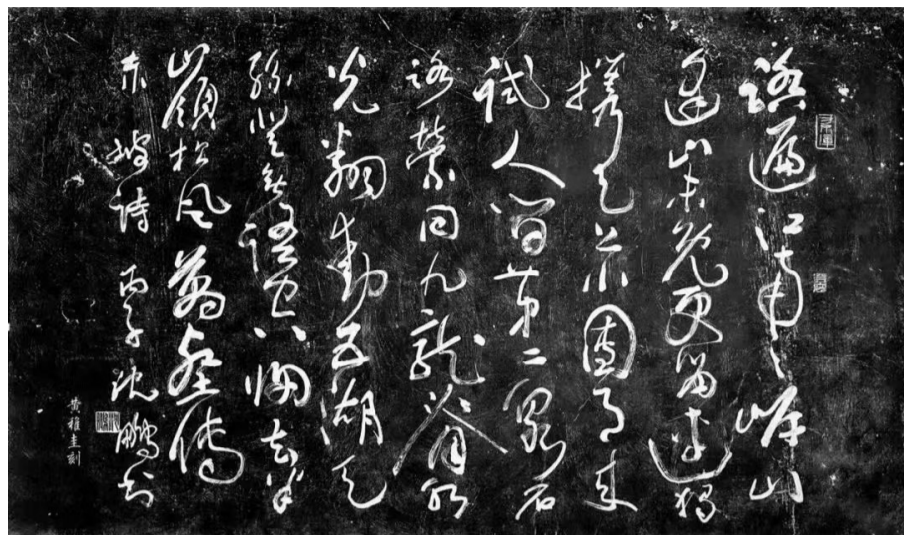 踏遍江南々岸山
逢山未免更留連獨
攜天上小團月来
試人間第二泉石
路縈回九龍脊水
光翻動五湖天
孫登無語空歸去半
嶺松風萬壑傳
東坡詩 丙子沈鵬書
黄稚圭刻